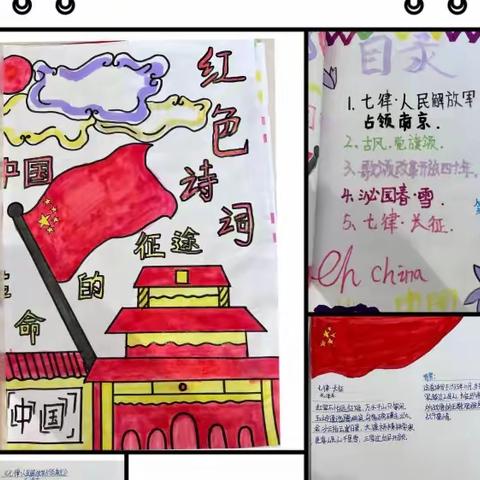 红色诗词
中国
征途
的
命
中国
目录
1.七律·人民解放军
占领南京.
2.古风·党旗颂.
3.歌颂改革开放四十年.
4.泌园春·雪.
5.七律·长征.
china
中国
七律·长征
红军不怕远征难,万水千山只等闲
五岭逶迤腾细浪,乌蒙磅礴走泥丸
金沙水拍云崖暖,大渡桥横铁索寒
更喜岷山千里雪,三军过后尽开颜